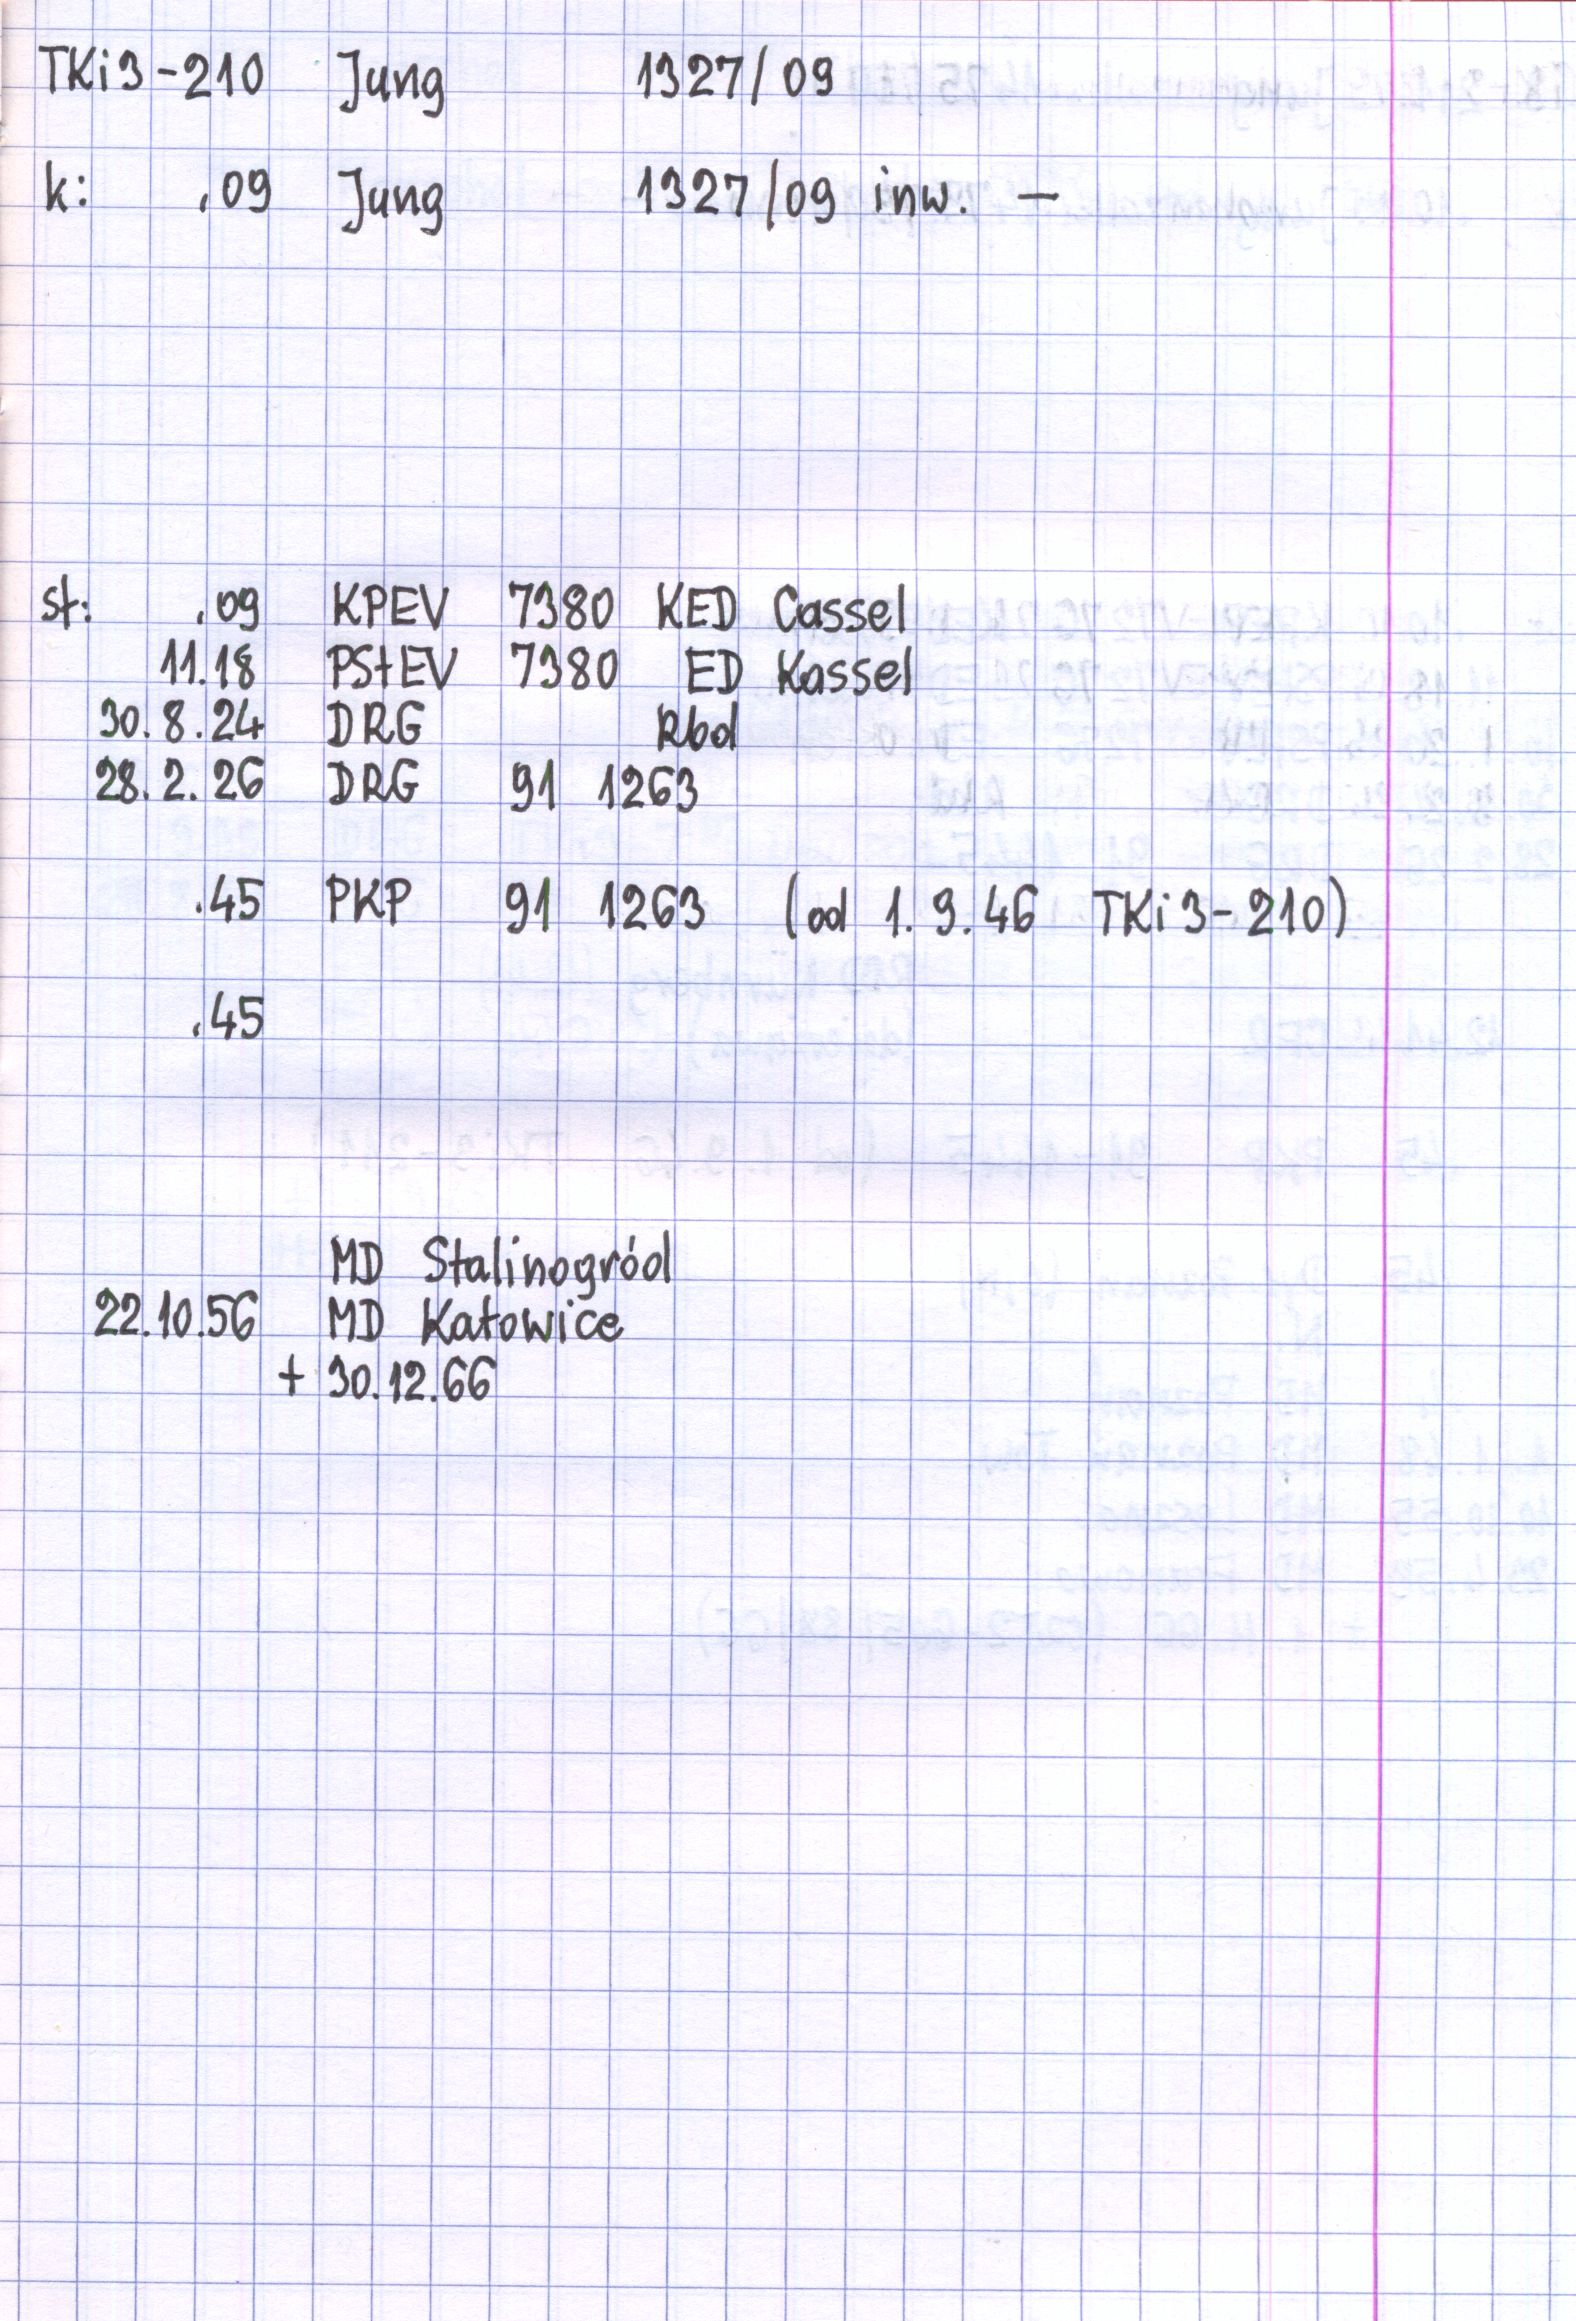 TKi3-210 Jung 1327/09
k: .09 Jung 1327/09 inw. —
st: .09 KPEV 7380 KED Cassel
11.18 PStEV 7380 ED Kassel
30.8.24 DRG Rbd
28.2.26 DRG 91 1263
.45 PKP 91 1263 (od 1.9.46 TKi3-210)
.45
MD Stalinogród
22.10.56 MD Katowice
+ 30.12.66